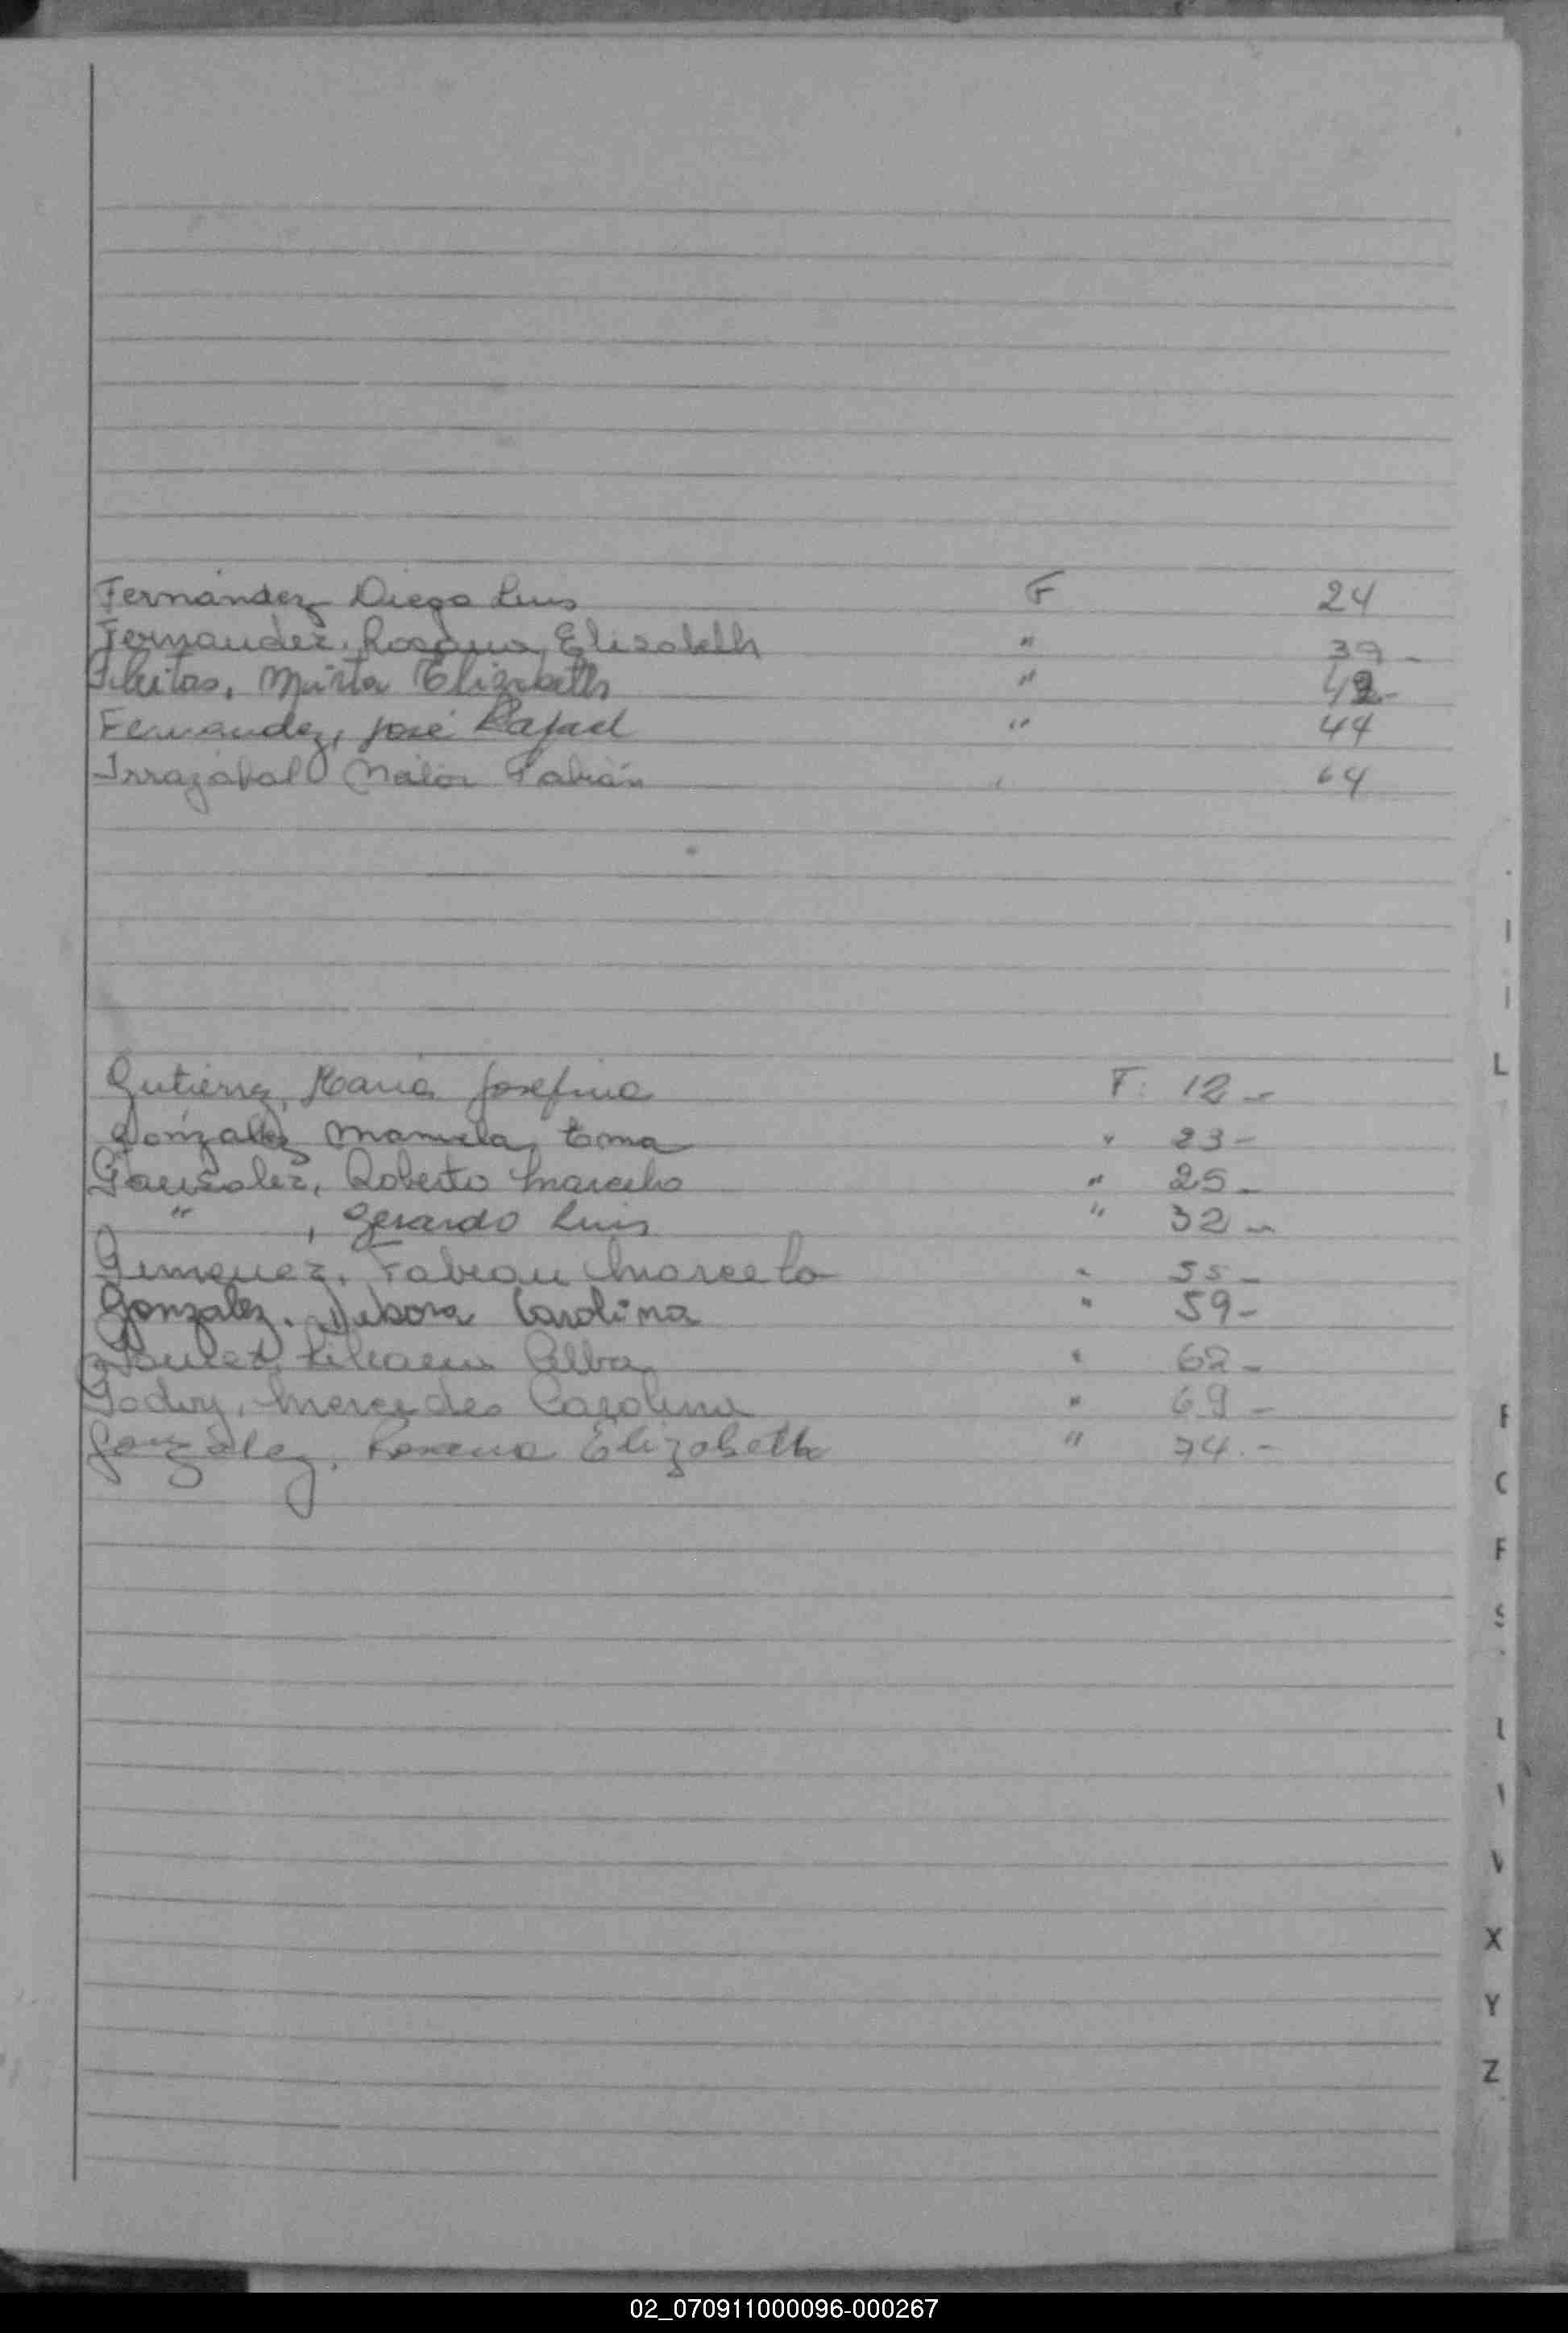 Fernández Diego Luis F 24
Fernandez, Rosana Elisabeth " 39-
Mirta Elizabeth " 42-
Fernandez, José Rafael " 44
Irrazábal Fabián 64
Gutierrez, Maria Josefina F: 12-
González Manuela " 23-
Gonzalez, Roberto Marcelo " 25-
" , Gerardo Luis " 32-
Gimenez, Fabian Marcelo " 55-
Gonzalez, Debora Carolina " 59-
Alba " 62-
Godoy, Mercedes Carolina " 69-
González, Elizabeth " 74.-
L
X
Y
Z
02_070911000096-000267